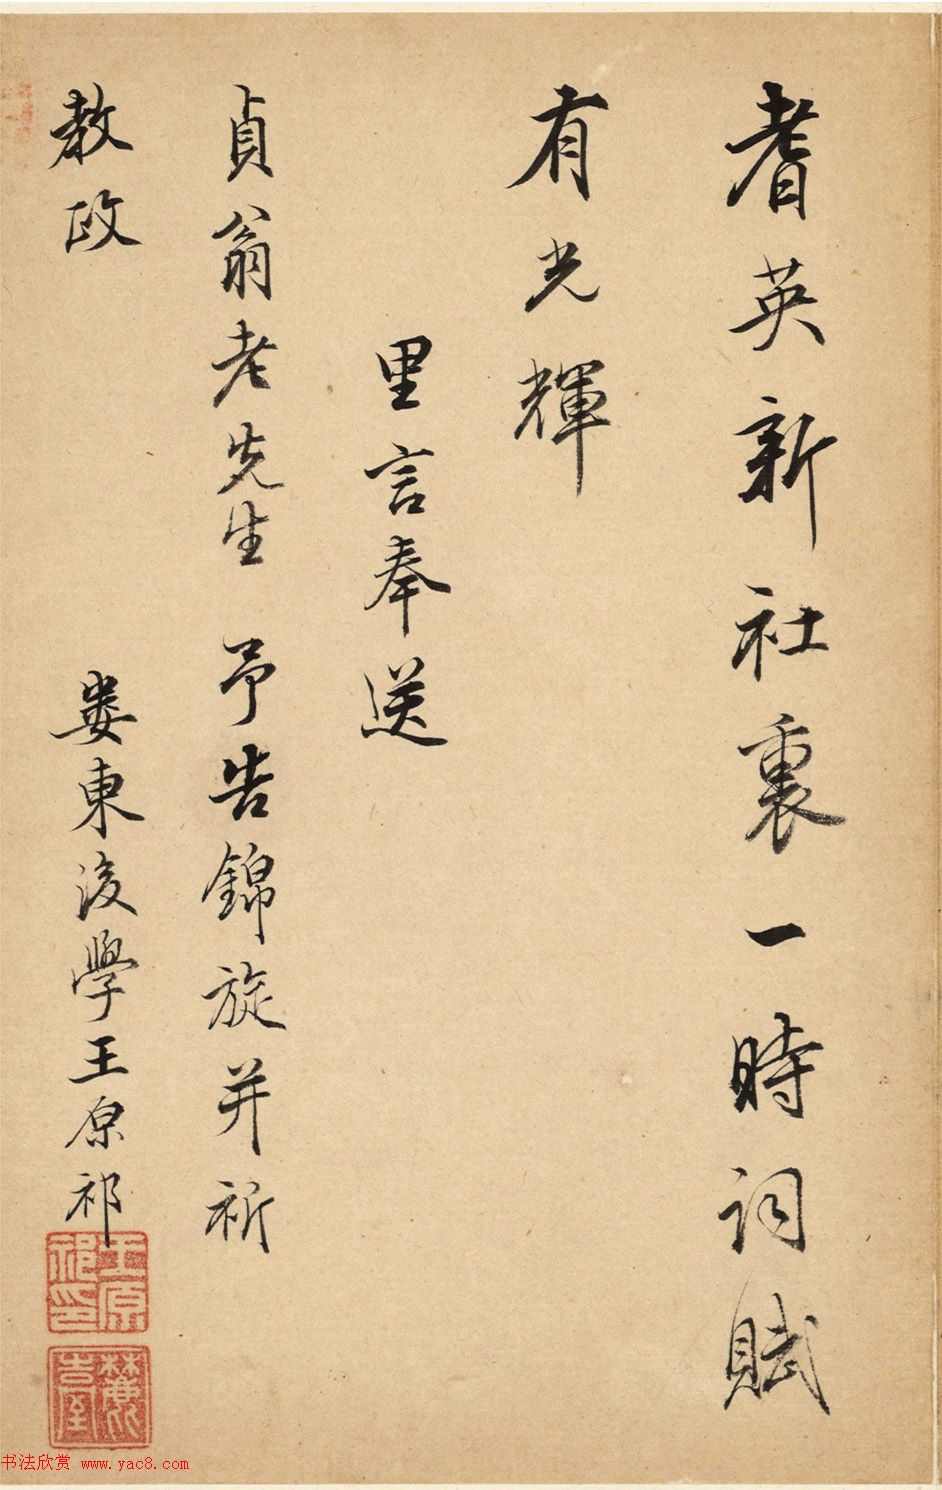 耆英新社裏一時詞賦
有光輝
里言奉送
貞翁老先生 予告錦旋并祈
教政
婁東後學王原祁
王原祁印
書法欣赏 www.yac8.com